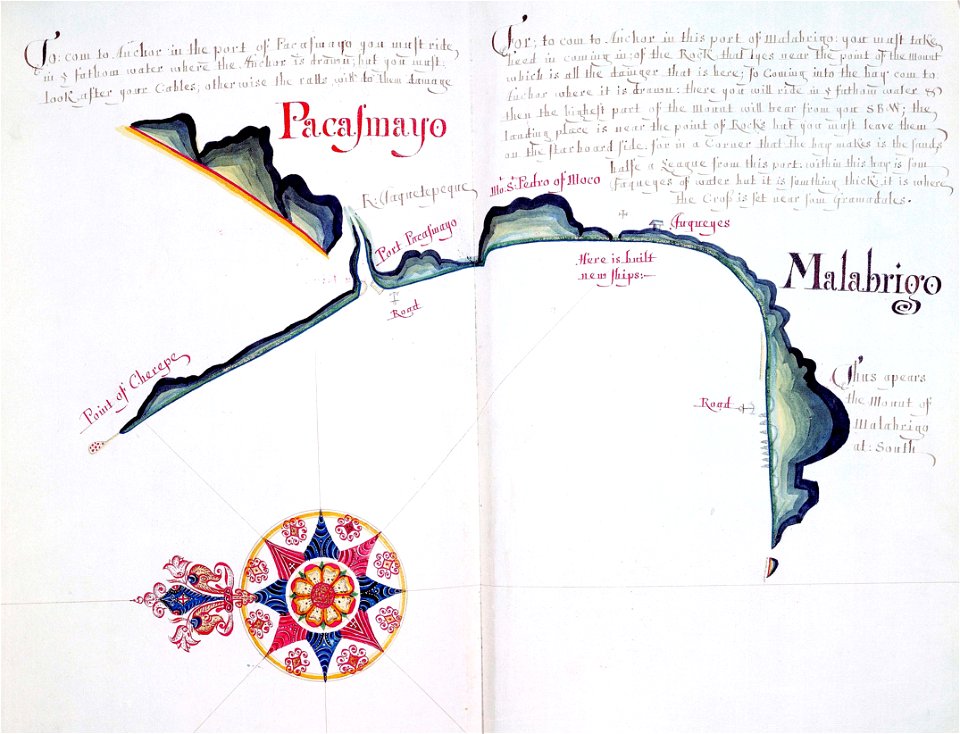 To: com to Anchor in the port of Pacasmayo you must ride
in 5 fathom water where the Anchor is drawn; but you must
look after your Cables; otherwise the ralls will to them damage
Pacasmayo
For; to com to Anchor in this port of Malabrigo: you must take
heed in coming in: of the Rock that lyes near the point of the Mount
which is all the dainger that is here; so Coming into the bay com to
Anchor where it is drawn: there you will ride in 5 fathom water &
then the highest part of the Mount will bear from you SBW; the
landing place is near the point of Rocks but you must leave them
on the starboard side. for in a Corner that the bay makes is the sands
halfe a League from this port: within this bay is som
Jaqueyes of water but it is somthing thick: it is where
the Cross is set near som Gramadales.
R: Jaquetepeque
Port Pacasmayo
Road
Point of Cherepe
Mo. S: Pedro of Moco
Juqueyes
Here is built
new ships:
Malabrigo
Road
Thus apears
the Mount of
Malabrigo
at: South